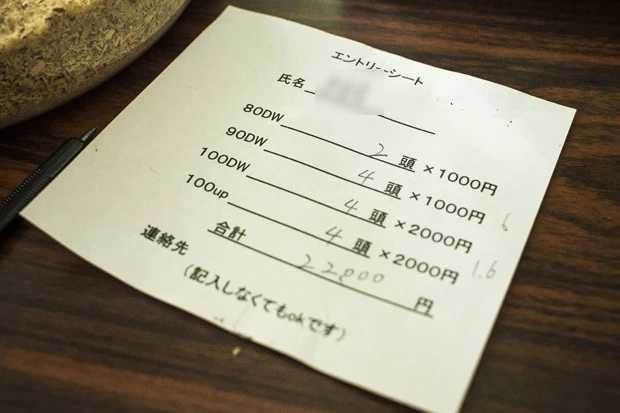 エントリーシート
氏名
80DW 2 頭 ×1000円
90DW 4 頭 ×1000円
100DW 4 頭 ×2000円 6
100up 4 頭 ×2000円 1.6
合計 22,000 円
連絡先
(記入しなくてもokです)